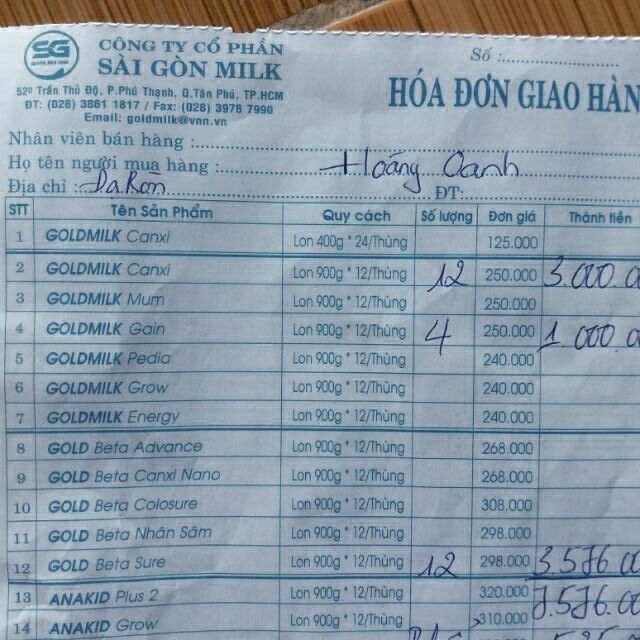 SG
CÔNG TY CỔ PHẦN
SÀI GÒN MILK
520 Trần Thủ Độ, P.Phú Thạnh, Q.Tân Phú, TP.HCM
ĐT: (028) 3861 1817 / Fax: (028) 3978 7990
Email: goldmilk@vnn.vn
Số :
HÓA ĐƠN GIAO HÀN
Nhân viên bán hàng :
Họ tên người mua hàng : Hoàng Oanh
Địa chỉ : Da Ron ĐT:
STT Tên Sản Phẩm Quy cách Số lượng Đơn giá Thành tiền
1 GOLDMILK Canxi Lon 400g * 24/Thùng 125.000
2 GOLDMILK Canxi Lon 900g * 12/Thùng 12 250.000 3.000.00
3 GOLDMILK Mum Lon 900g * 12/Thùng 250.000
4 GOLDMILK Gain Lon 900g * 12/Thùng 4 250.000 1.000.0
5 GOLDMILK Pedia Lon 900g * 12/Thùng 240.000
6 GOLDMILK Grow Lon 900g * 12/Thùng 240.000
7 GOLDMILK Energy Lon 900g * 12/Thùng 240.000
8 GOLD Beta Advance Lon 900g * 12/Thùng 268.000
9 GOLD Beta Canxi Nano Lon 900g * 12/Thùng 268.000
10 GOLD Beta Colosure Lon 900g * 12/Thùng 308.000
11 GOLD Beta Nhân Sâm Lon 900g * 12/Thùng 298.000
12 GOLD Beta Sure Lon 900g * 12/Thùng 12 298.000 3.576.00
13 ANAKID Plus 2 Lon 900g * 12/Thùng 320.000 7.576.00
14 ANAKID Grow Lon 900g * 12/Thùng 310.000